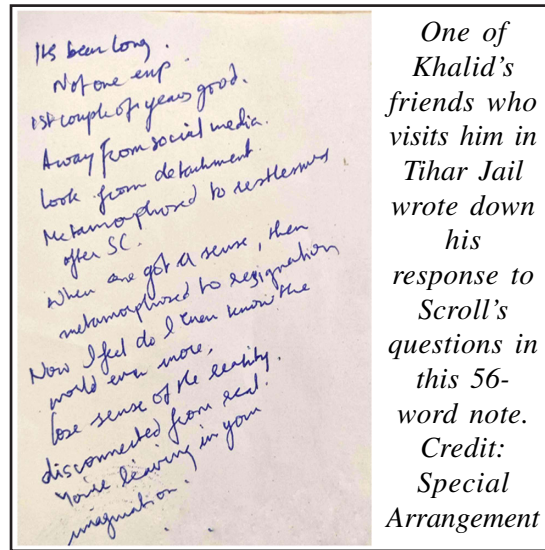 Its been long.
Not one exp.
1st couple of years good.
Away from social media.
Look from detachment.
Metamorphosed to restlessness
after SC.
When one got a sense, then
metamorphosed to resignation
Now I feel do I even know the
world even more,
lose sense of the reality.
disconnected from real.
You're leaving in your
imagination.
One of
Khalid's
friends who
visits him in
Tihar Jail
wrote down
his
response to
Scroll's
questions in
this 56-
word note.
Credit:
Special
Arrangement